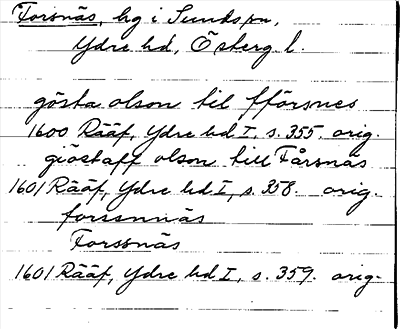 Forsnäs, hg i Sunds sn,
Ydre hd, Österg. l.
gösta olson til fförsnes
1600 Rääf, Ydre hd I, s. 355. orig.
giöstaff olson till Fårsnäs
1601 Rääf, Ydre hd I, s. 358. orig.
forssnnäs
Forssnäs
1601 Rääf, Ydre hd I, s. 359. orig.